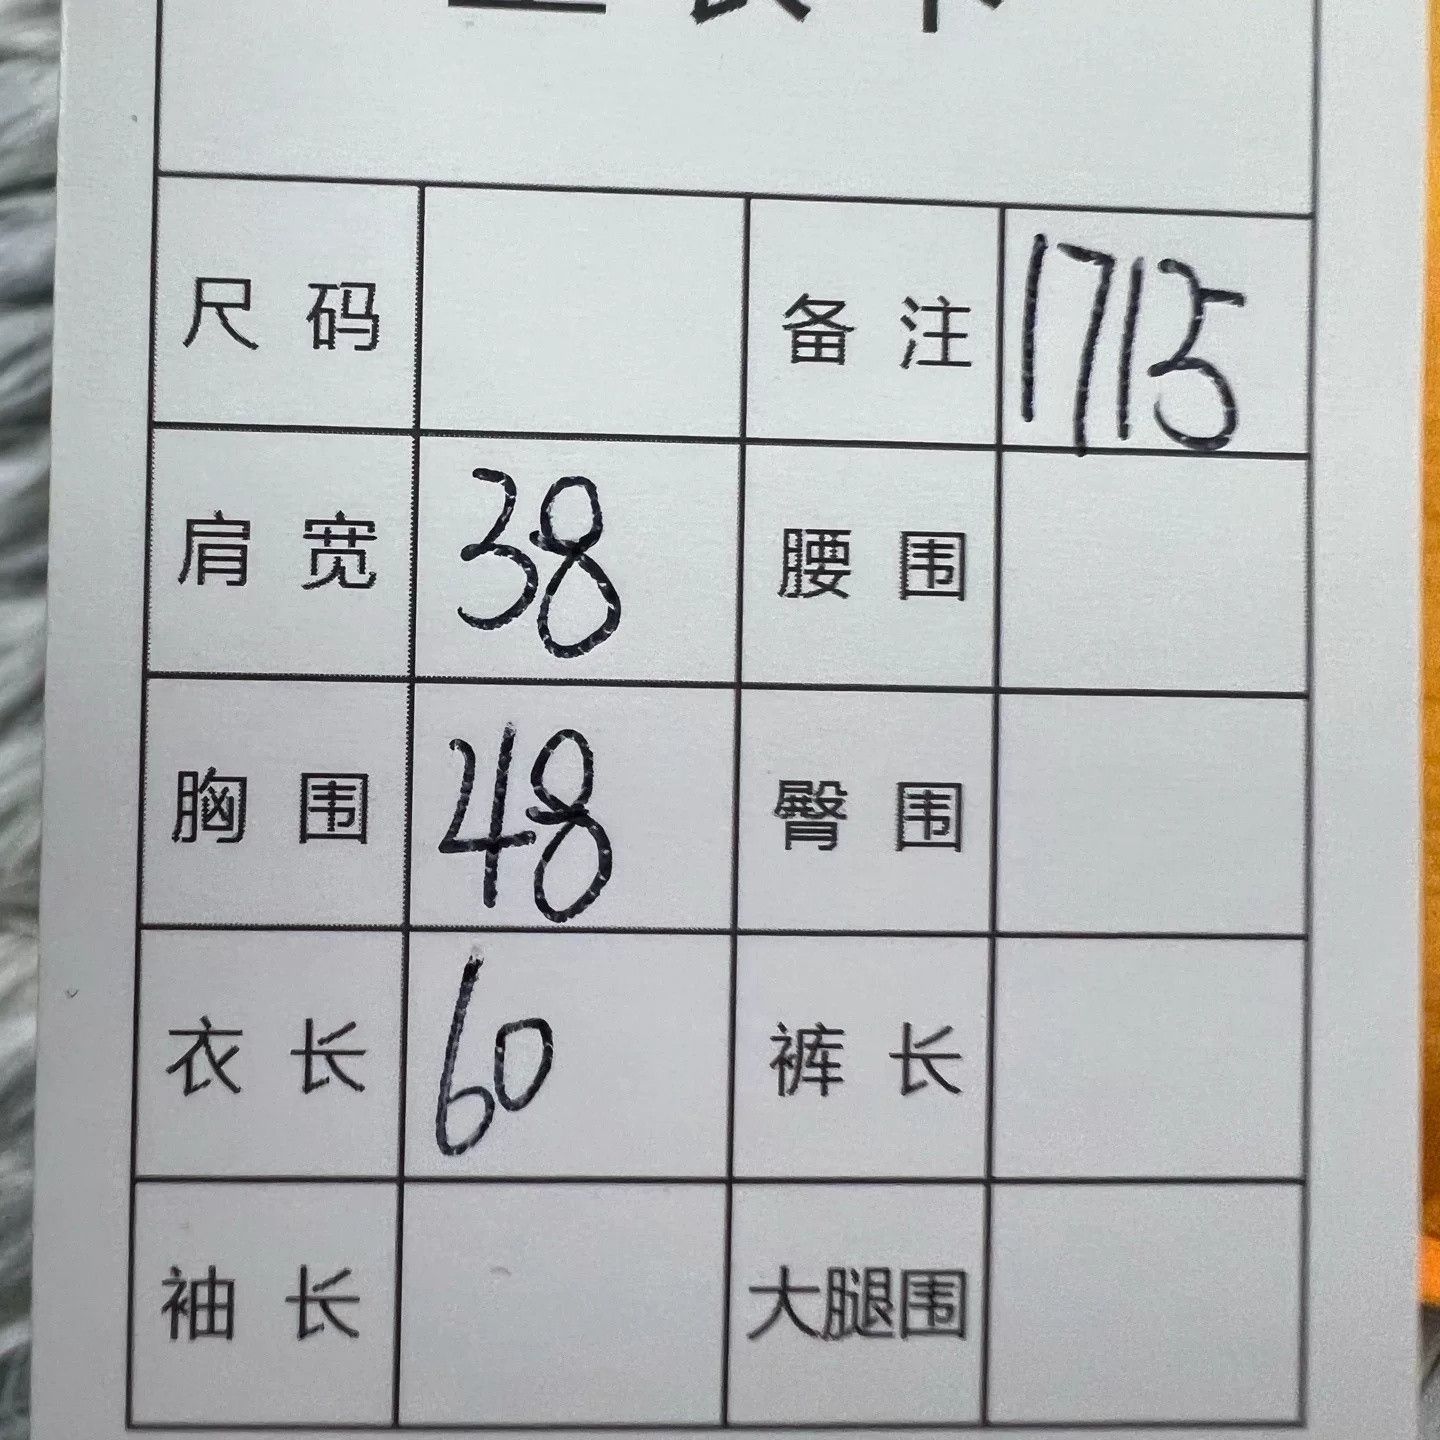 尺码 备注 1715
肩宽 38 腰围
胸围 48 臀围
衣长 60 裤长
袖长 大腿围